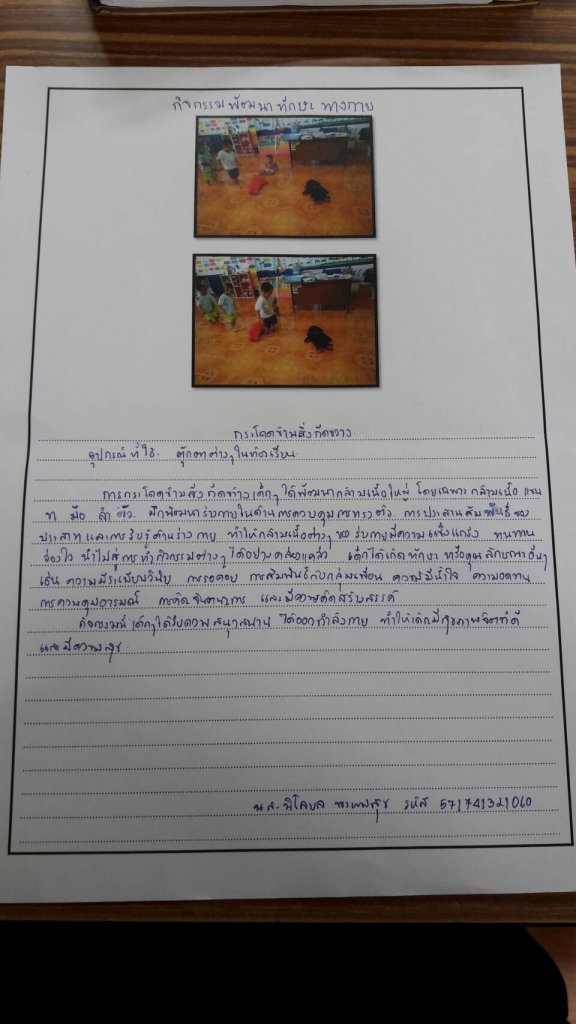 กิจกรรมพัฒนาทักษะทางกาย
กระโดดข้ามสิ่งกีดขวาง
อุปกรณ์ที่ใช้ ตุ๊กตาต่างๆในห้องเรียน
การกระโดดข้ามสิ่งกีดขวางเด็กๆได้พัฒนากล้ามเนื้อใหญ่ โดยเฉพาะกล้ามเนื้อ แขน
ขา มือ ลำตัว ฝึกพัฒนาร่างกายในด้านการควบคุมการทรงตัว การประสานสัมพันธ์ของ
ประสาทและการรับรู้ด้านร่างกาย ทำให้กล้ามเนื้อต่างๆของร่างกายมีความแข็งแกร่ง ทนทาน
ว่องไว นำไปสู่การทำกิจกรรมต่างๆได้อย่างคล่องแคล่ว เด็กได้เกิดทักษะหรือคุณลักษณะอื่นๆ
เช่น ความมีระเบียบวินัย การรอคอย การสัมพันธ์กับกลุ่มเพื่อน ความมีน้ำใจ ความอดทน
การควบคุมอารมณ์ การคิดจินตนาการ และมีความคิดสร้างสรรค์
กิจกรรมนี้เด็กๆได้รับความสนุกสนาน ได้ออกกำลังกาย ทำให้เด็กมีสุขภาพจิตที่ดี
และมีความสุข
น.ส. รหัส 571741321060